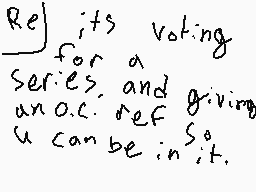 Re its voting
for a
series, and giving
an o.c. ref so
u can be in it.